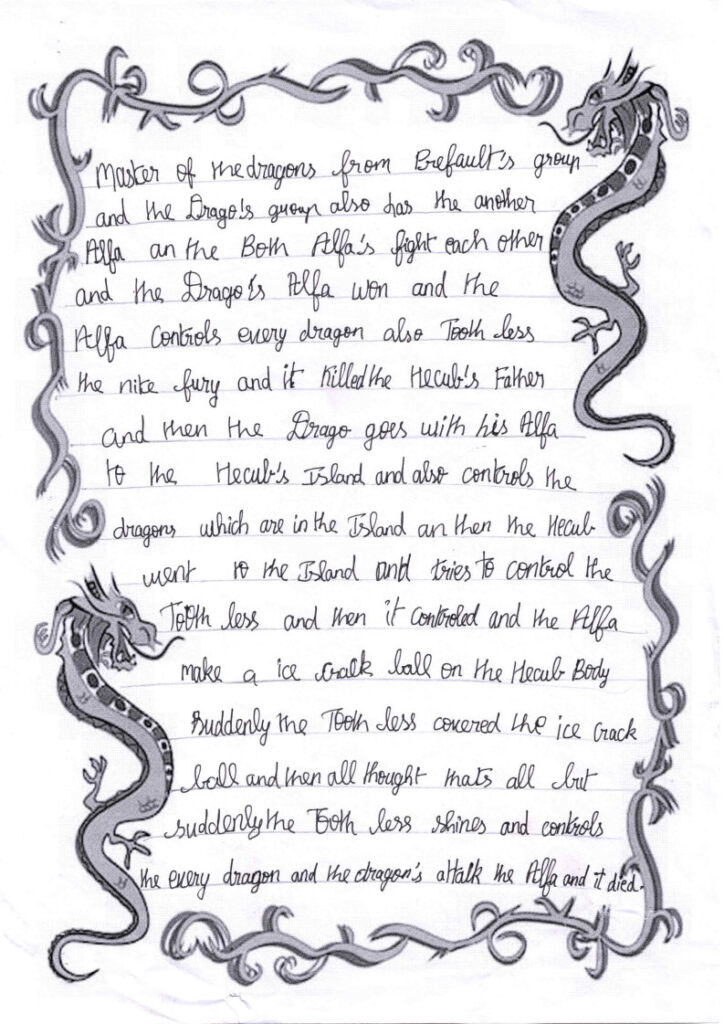 Master of the dragons from Brefault's group
and the Drago's group also has the another
Alfa an the Both Alfa's fight each other
and the Drago's Alfa won and the
Alfa Controls every dragon also Tooth less
the nite fury and it killed the Hecub's Father
and then the Drago goes with his Alfa
to the Hecub's Island and also controls the
dragons which are in the Island an then the Hecub
went to the Island and tries to control the
Tooth less and then it controled and the Alfa
make a ice cralk ball on the Hecub Body
suddenly the Tooth less covered the ice crack
ball and then all thought thats all but
suddenly the Tooth less shines and controls
the every dragon and the dragon's attalk the Alfa and it died.